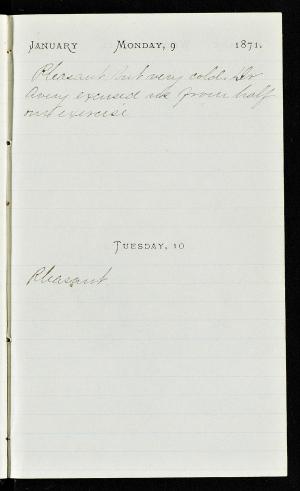 JANUARY MONDAY, 9 1871.
Pleasant but very cold. Dr
Avery excused us from half
our exercise
TUESDAY, 10
Pleasant